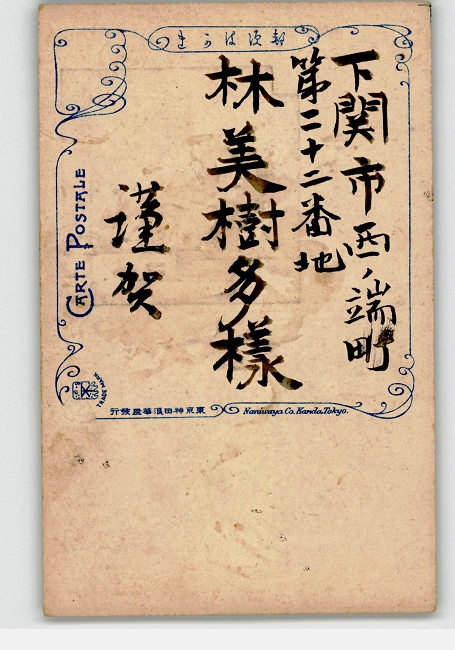 郵便はかき
下関市西ノ端町
第二十二番地
林美樹多様
謹賀
CARTE POSTALE
TRADE MARK
東京神田浪華屋發行
Naniwaya Co. Kanda, Tokyo.